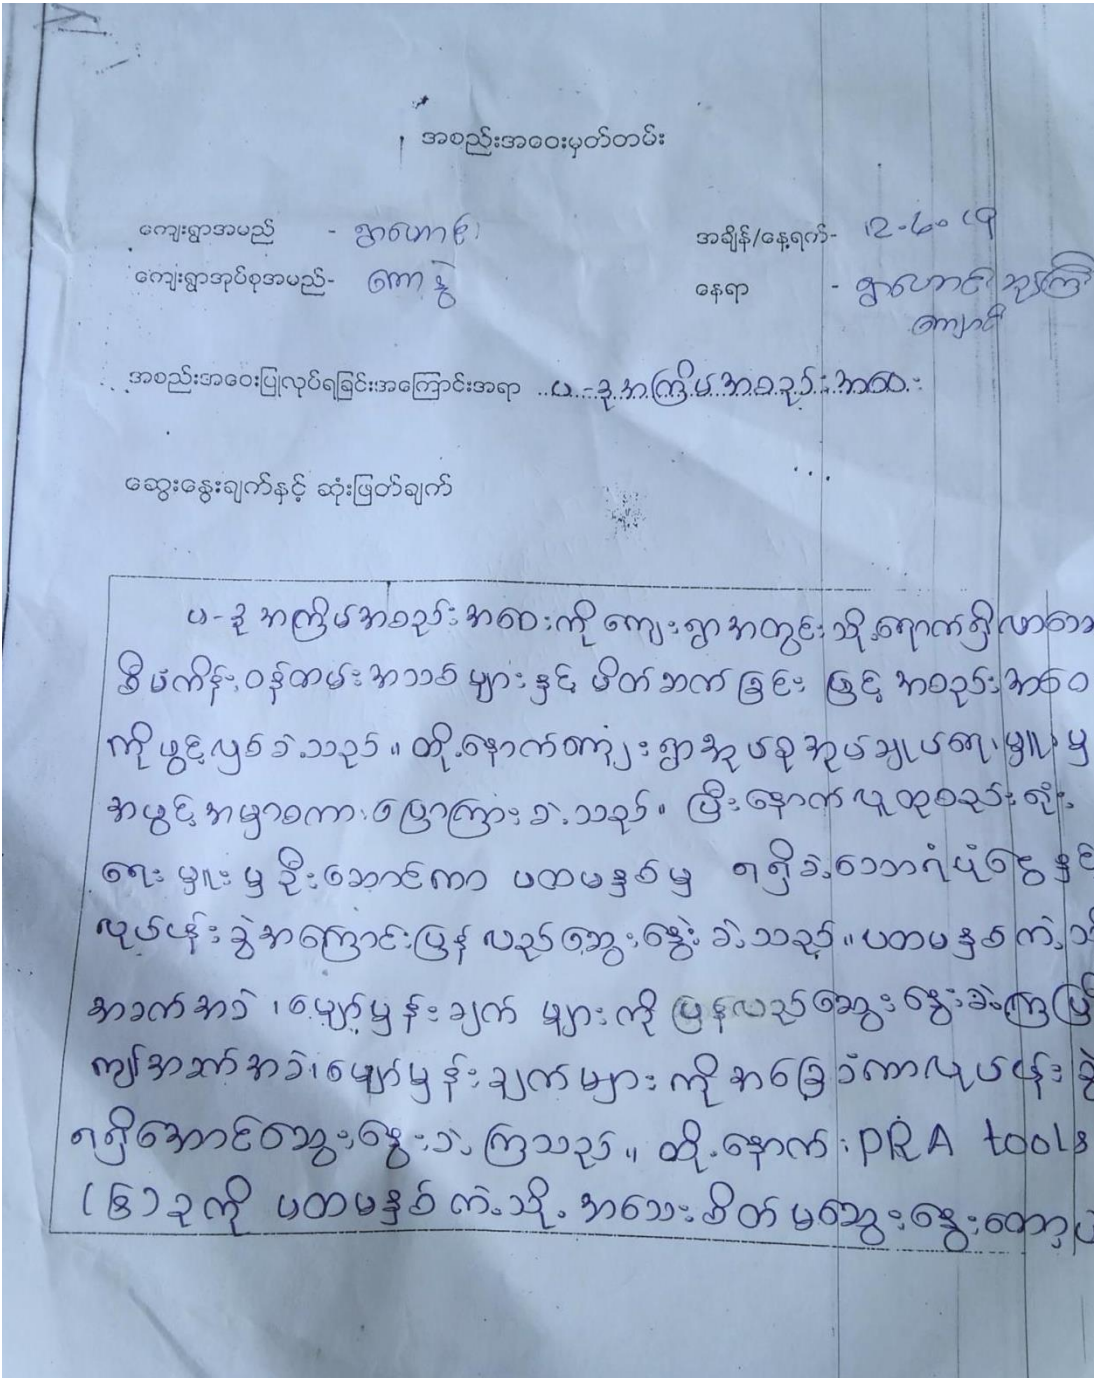 အစည်းအဝေးမှတ်တမ်း
ကျေးရွာအမည် - ရွာဟောင်း အချိန်/နေ့ရက်- 12-6-19
ကျေးရွာအုပ်စုအမည်- ကောနွဲ နေရာ - ရွာဟောင်း ဘုန်ကြီး
ကျောင်း
အစည်းအဝေးပြုလုပ်ရခြင်းအကြောင်းအရာ ..ပ-ခုအကြိမ်အစည်းအဝေး
ဆွေးနွေးချက်နှင့် ဆုံးဖြတ်ချက်
ပ-ခုအကြိမ်အစည်းအဝေးကို ကျေးရွာအတွင်းသို့ရောက်ရှိလာသော
စီမံကိန်းဝန်ထမ်းအသစ်များနှင့် မိတ်ဆက်ခြင်းဖြင့် အစည်းအဝေ
ကိုဖွင့်လှစ်ခဲ့သည်။ ထို့နောက်ကျေးရွာအုပ်စုအုပ်ချုပ်ရေးမှူးမှ
အဖွင့်အမှာစကားပြောကြားခဲ့သည်။ ပြီးနောက်လူထုစည်းရုံး
ရေးမှူးမှ ဦးဆောင်ကာ ပထမနှစ်မှ ရရှိခဲ့သောရံပုံငွေနှင်
လုပ်ငန်းခွဲအကြောင်းပြန်လည်ဆွေးနွေးခဲ့သည်။ ပထမနှစ်ကဲ့သိ
အခက်အခဲ၊ မျှော်မှန်းချက် များကို ပြန်လည်ဆွေးနွေးခဲ့ကြပြီ
အခက်အခဲ၊ မျှော်မှန်းချက်များ ကို အခြေခံကာလုပ်ငန်းခွဲ
ရရှိအောင်ဆွေးနွေးခဲ့ကြသည်။ ထို့နောက် PRA tools
(၆)ခုကို ပထမနှစ်ကဲ့သို့ အသေးစိတ်မဆွေးနွေးတော့ပ